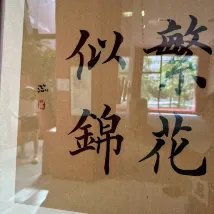 繁花
似錦